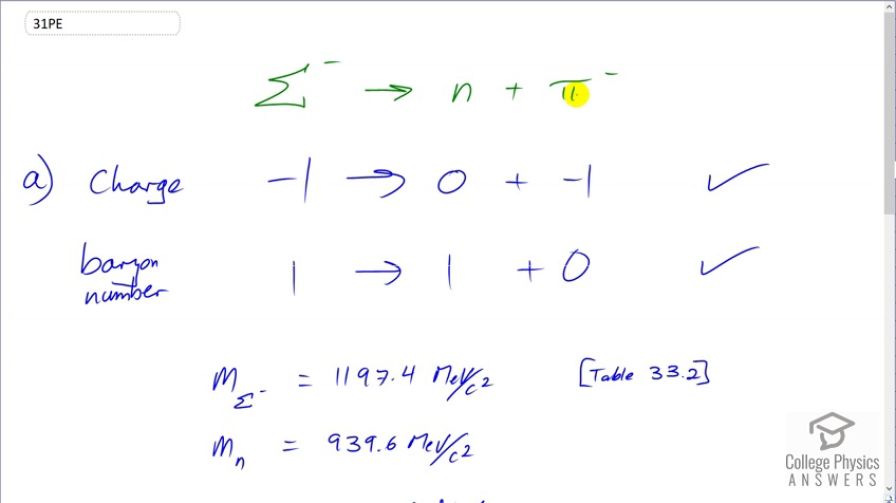 31PE
Σ⁻ → n + π⁻
a) Charge -1 → 0 + -1 ✓
baryon number 1 → 1 + 0 ✓
m_Σ⁻ = 1197.4 MeV/c2 [Table 33.2]
m_n = 939.6 MeV/c2
College Physics
ANSWERS